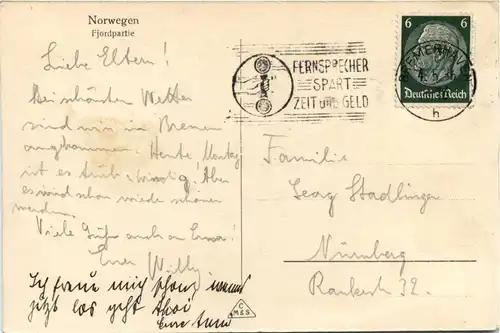 Norwegen
Fjordpartie
Liebe Eltern!
Bei schönsten Wetter
sind wir in Bremen
angekommen. Heute Montag
ist es trüb & windig! Aber
es wird schon wieder schöner
werden.
Viele Grüße auch an Erna!
Euer Willy
Ich freue mich schon wenns
jetzt los geht Ahoi
Eure
C
M&S
FERNSPRECHER
SPART
ZEIT UND GELD
BREMERHAVEN
h
6 6
Deutsches Reich
Familie
Georg Stadlinger
Nürnberg
Rankestr 32.